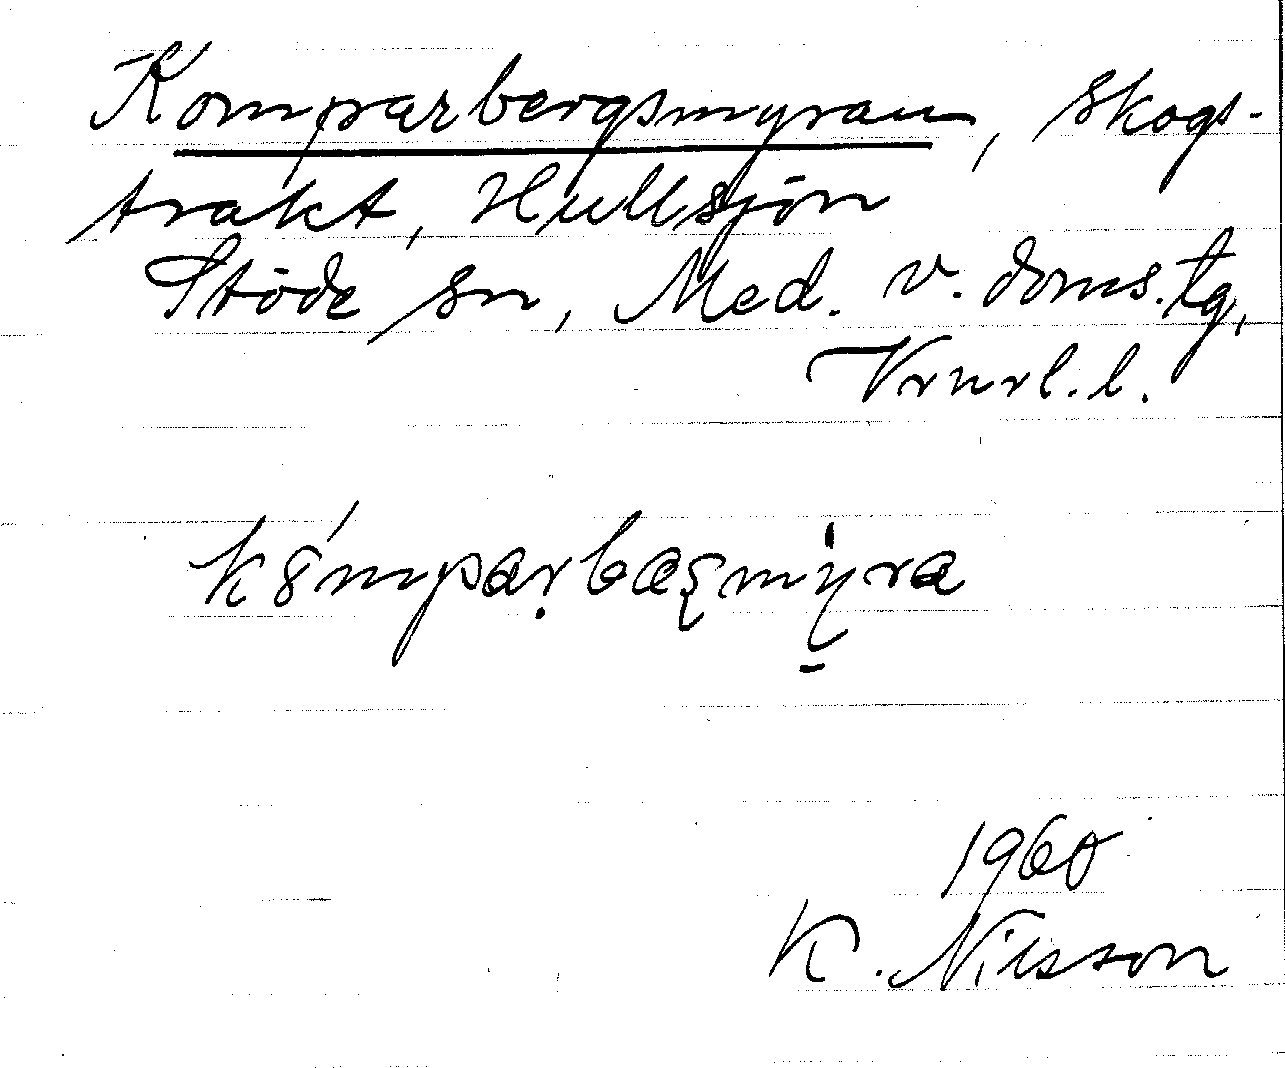 Komparbergsmyran, skogs-
trakt, Hullsjön
Stöde sn, Med. v. doms. tg,
Vrnrl. l.
kómparbæsmyra
1960
K. Nilsson